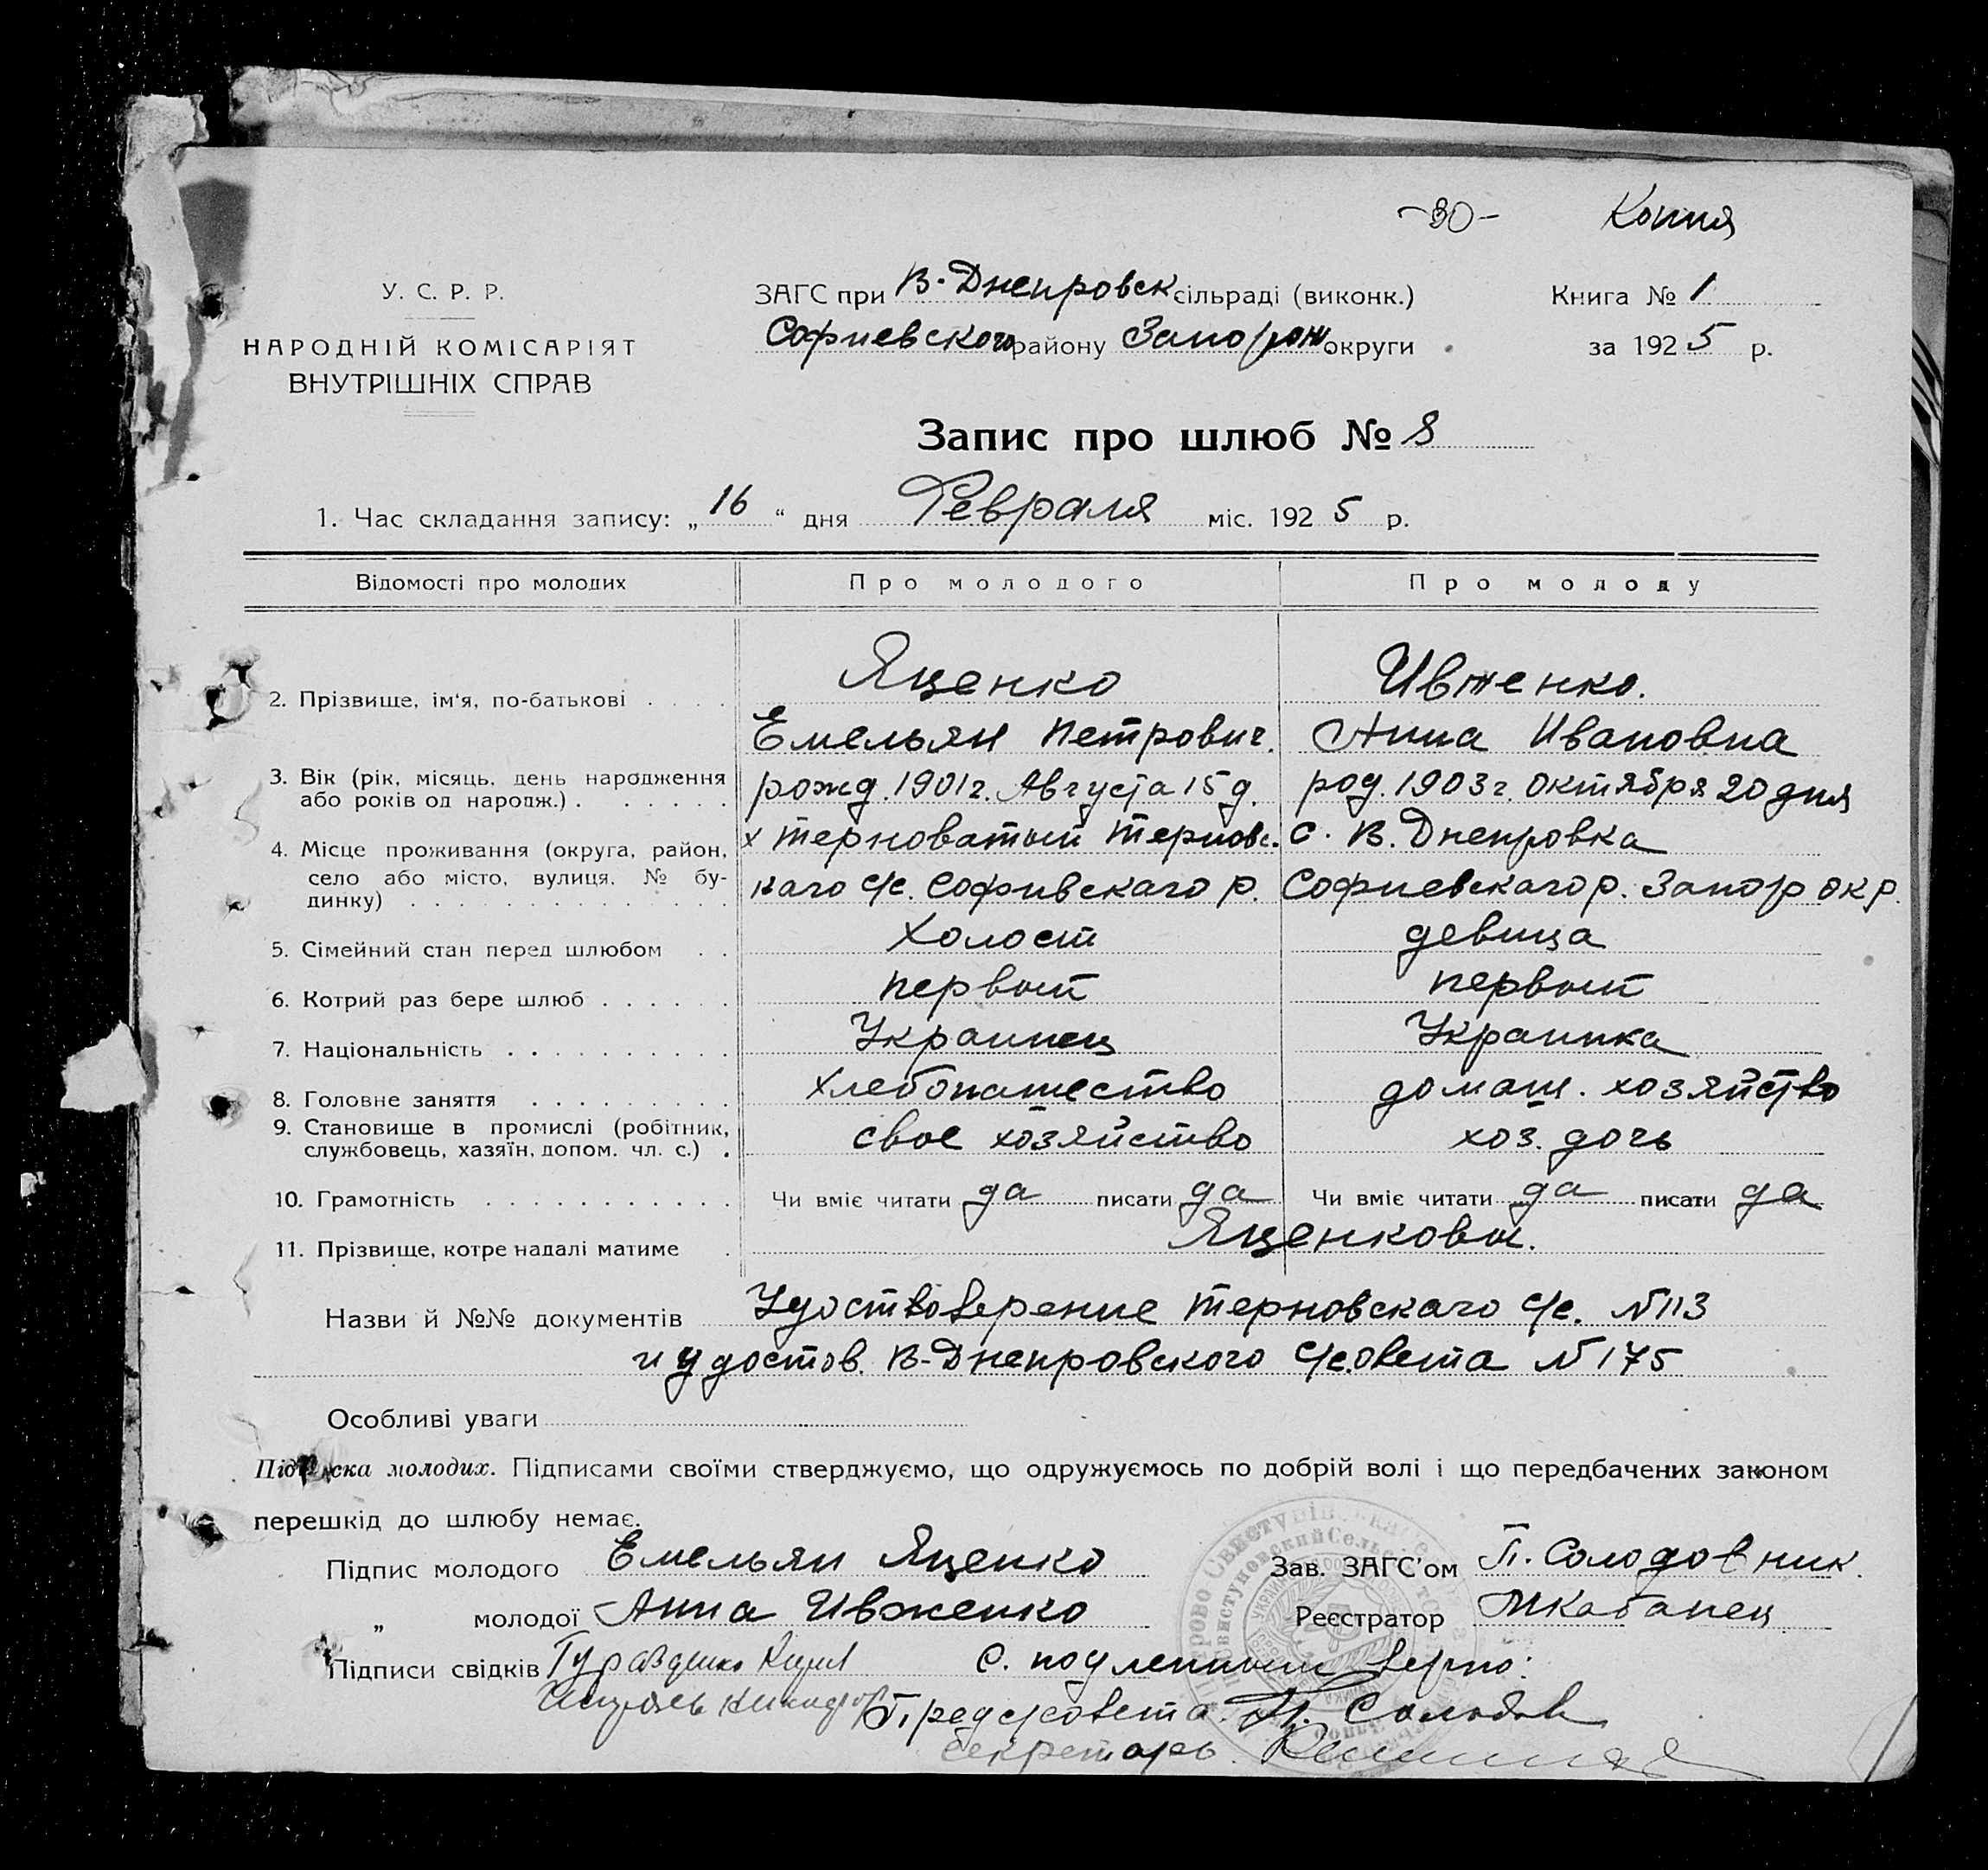 -30- Копия
У. С. Р. Р.
НАРОДНІЙ КОМІСАРІЯТ
ВНУТРІШНІХ СПРАВ
ЗАГС при В. Днепровск сільраді (виконк.)
Софиевского району Запорож округи
Книга № 1
за 1925 р.
Запис про шлюб № 8
1. Час складання запису: „16“ дня Февраля міс. 1925 р.
Відомості про молодих Про молодого Про молоду
2. Прізвище, ім'я, по-батькові Яценко Ивженко.
Емельян Петрович. Анна Ивановна
3. Вік (рік, місяць, день народження або років од народж.) рожд. 1901г. Августа 15 д. род. 1903 г. октября 20 дня
4. Місце проживання (округа, район, х Терноватый Терновс. с. В. Днепровка
село або місто, вулиця, № бу-
динку) каго с/с. Софивскаго р. Софиевскаго р. Запор окр.
5. Сімейний стан перед шлюбом Холост девица
6. Котрий раз бере шлюб первый первый
7. Національність Украинец Украинка
8. Головне заняття хлебопашество домаш. хозяйство
9. Становище в промислі (робітник,
службовець, хазяїн, допом. чл. с.) свое хозяйство хоз. дочь
10. Грамотність Чи вміє читати да писати да Чи вміє читати да писати да
11. Прізвище, котре надалі матиме Яценковы.
Назви й №№ документів Удостоверение Терновскаго с/с. N 113
и удостов. В-Днепровского с/совета N 175
Особливі уваги
Підписка молодих. Підписами своїми стверджуємо, що одружуємось по добрій волі і що передбачених законом
перешкід до шлюбу немає.
Підпис молодого Емельян Яценко Зав. ЗАГС'ом П. Солодовник.
„ молодої Анна Ивженко Реєстратор Кабанец
Підписи свідків С. подленным верно:
Пред с/совета П. Солодов
Секретарь.